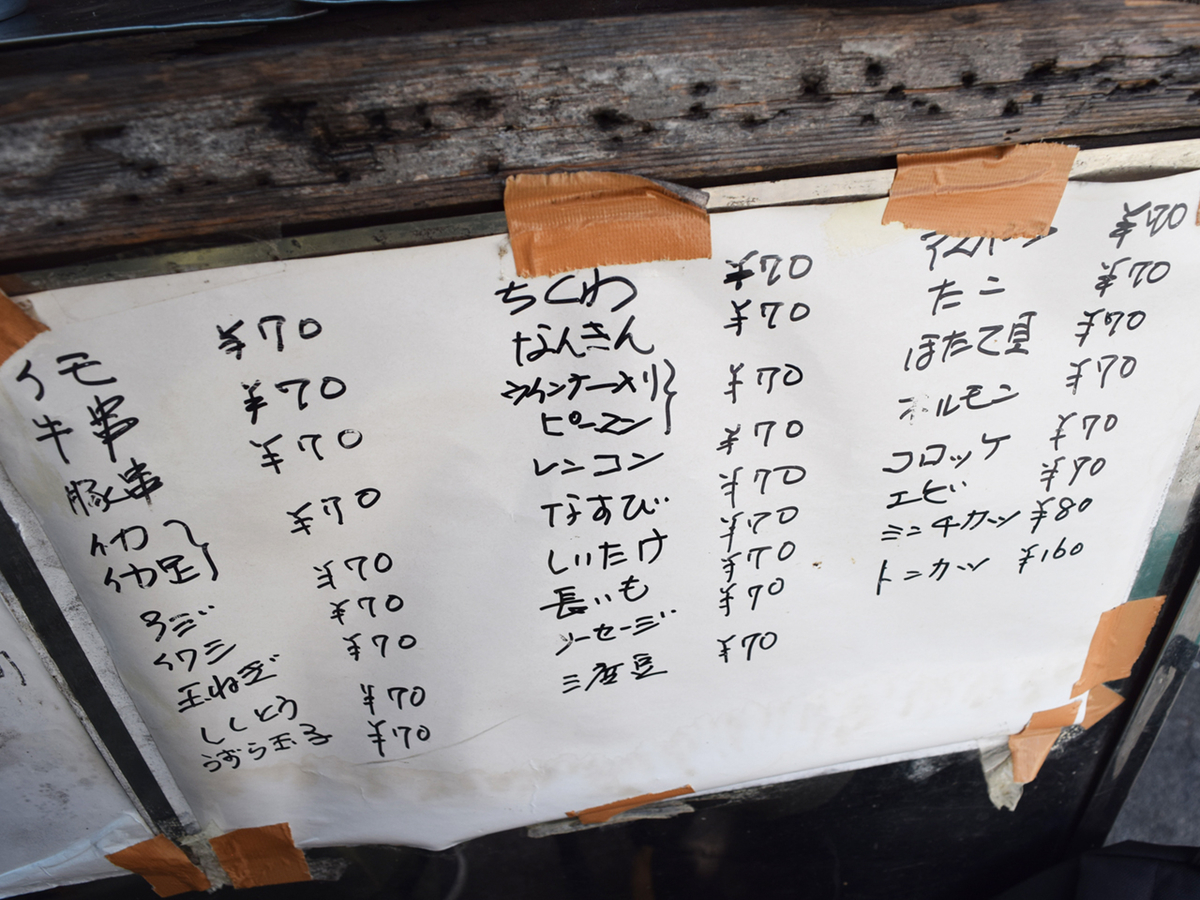 イモ ¥70
牛串 ¥70
豚串 ¥70
イカ
イカ足 ¥70
¥70
イワシ ¥70
玉ねぎ ¥70
ししとう ¥70
うずら玉子 ¥70
ちくわ ¥70
なんきん ¥70
ウインナー
ピーマン ¥70
レンコン ¥70
なすび ¥70
しいたけ ¥70
長いも ¥70
ソーセージ ¥70
三度豆 ¥70
¥70
たこ ¥70
ほたて貝 ¥70
ホルモン ¥70
コロッケ ¥70
エビ ¥90
ミニチカツ ¥80
トンカツ ¥160